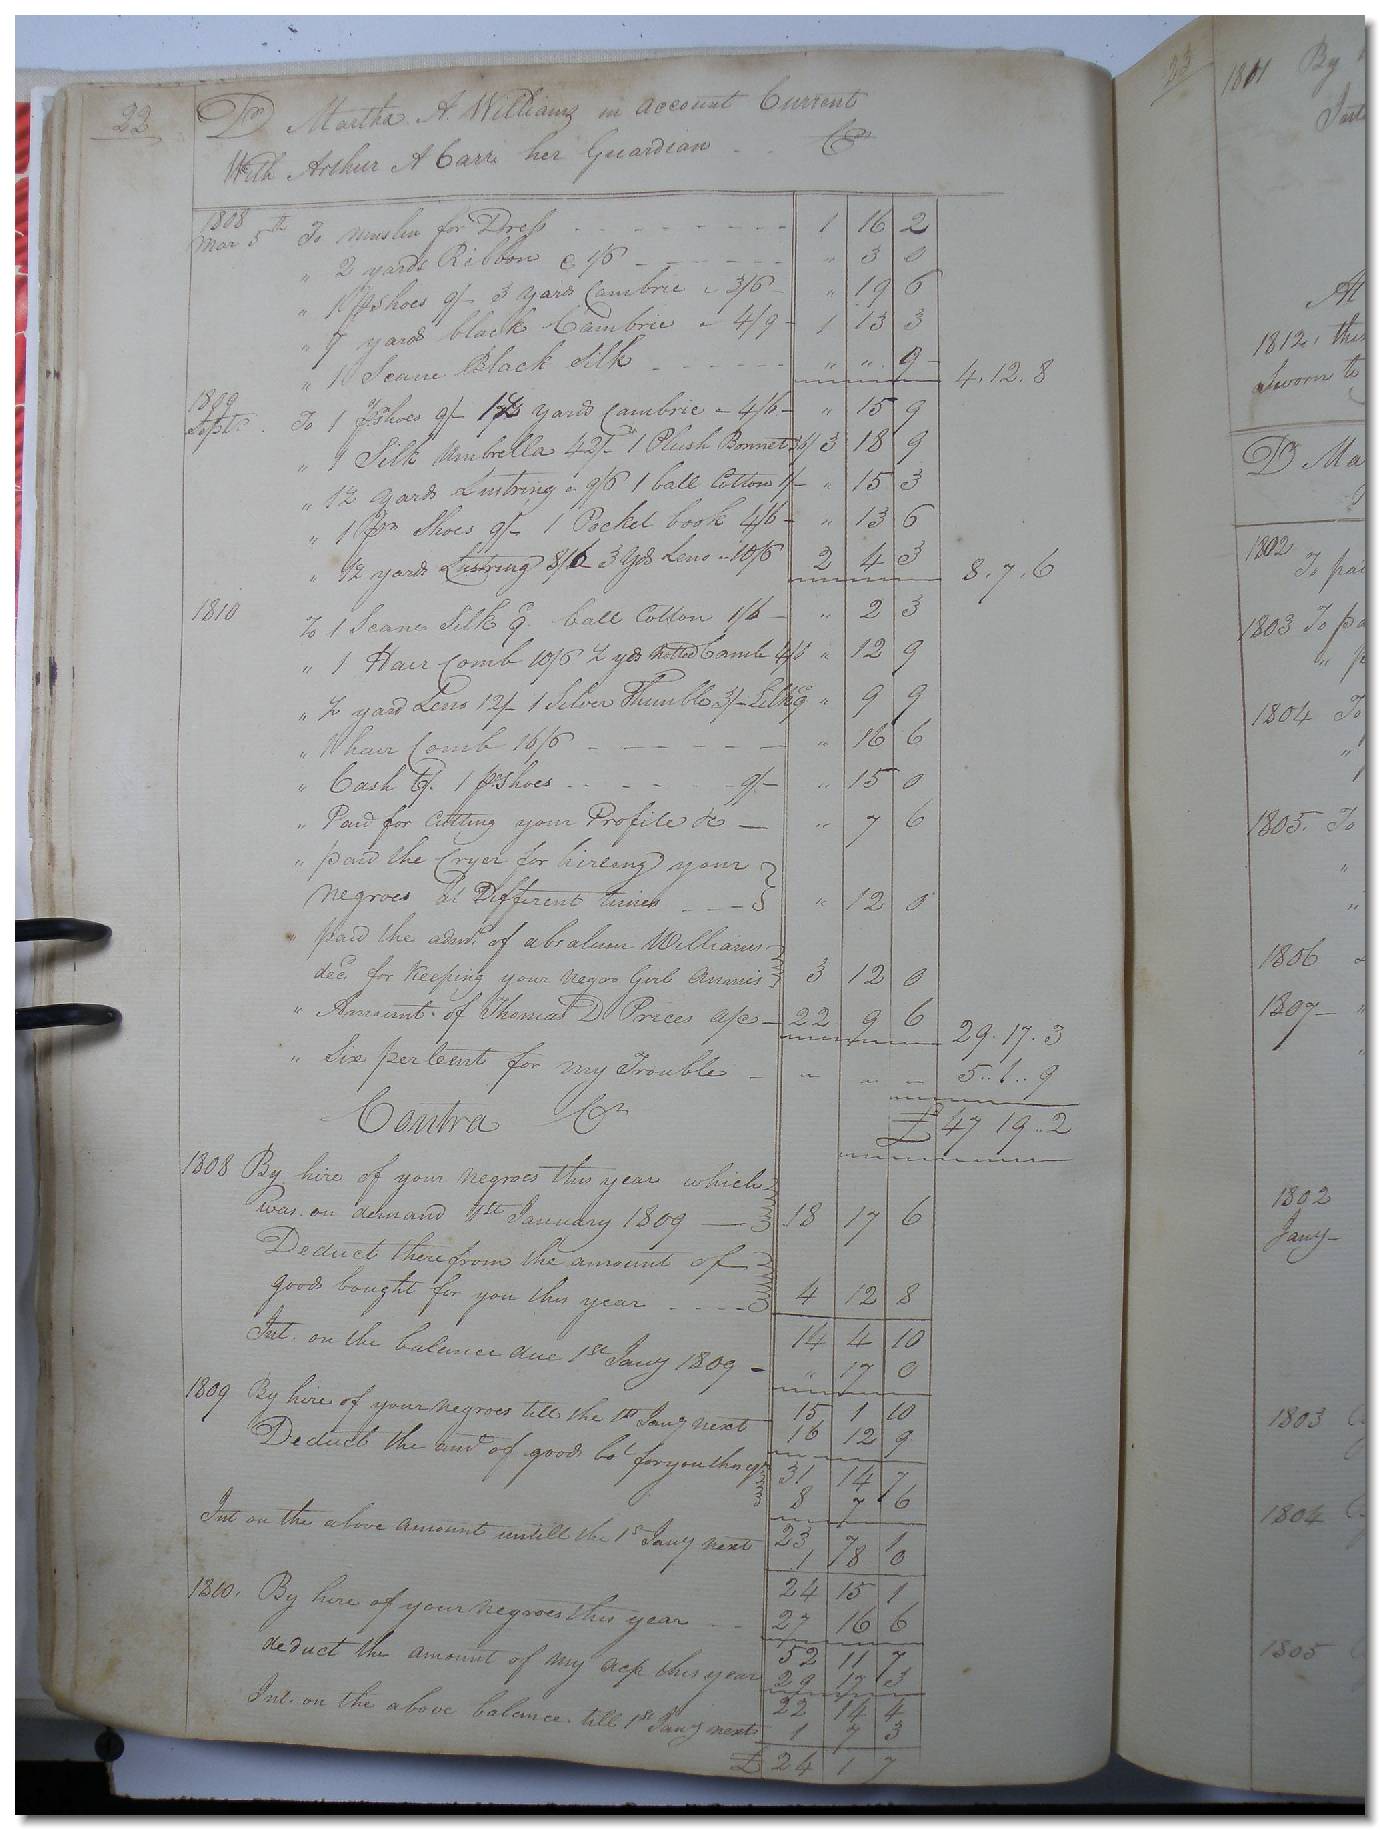 22
Dr Martha A. Williams in account Current
With Arthur A Carr her Guardian - - Cr
1808
Mar 5th To muslin for Dress - - - - - - - - 1 16 2
" 2 yards Ribbon @ 1/6 - - - - - - " 3 0
" 1 pr Shoes 9/- 3 yards Cambric " 3/6 - " 19 6
" 7 yards black Cambric " 4/9 - 1 13 3
" 1 Scane Black Silk - - - - - - " " 9 4.12.8
1809
Sept. To 1 pr Shoes 9/- yards Cambric " 4/6 - " 15 9
" 1 Silk Umbrella 42/- 1 Plush Bonnet 3 18 9
" 1½ yards Lustring " 9/6 1 ball Cotton 1/- " 15 3
" 1 pr Shoes 9/- 1 Pocket book 4/6 - " 13 6
" 1½ yards Lustring 8/6 3 yds Leno " 10/6 2 4 3 8.7.6
1810 To 1 Scane Silk 9. ball Cotton 1/6 - " 2 3
" 1 Hair Comb 10/6 ½ yds Cambc 4/6 " 12 9
" ½ yard Leno 12/- 1 Silver Thimble 3/- Silk 9 " 9 9
" 1 hair Comb 16/6 - - - - - - " 16 6
" Cash 1 pr Shoes - - - - - 9/- " 15 0
" Paid for cutting your Profile &c - " 7 6
" paid the Cryer for hireing your
negroes at Different times - - - " 12 0
" paid the admr. of absalum Williams
decd for Keeping your negro Girl Annis 3 12 0
" Amount of Thomas D Prices a/c - 22 9 6 29.17.3
" Six per Cent for my Trouble - " " " 5..1..9
Contra Cr £ 47 19..2
1808 By hire of your negroes this year which
was on demand 1st January 1809 - 18 17 6
Deduct therefrom the amount of
goods bought for you this year - - - - 4 12 8
14 4 10
Int. on the balance due 1st Jany 1809 - " 17 0
15 1 10
1809 By hire of your negroes till the 1st Jany next 16 12 9
31 14 7
Deduct the amt of goods bot for you this yr 8 7 6
23 7 1
Int on the above amount untill the 1st Jany next 1 8 0
24 15 1
1810. By hire of your negroes this year - - 27 16 6
52 11 7
deduct the amount of my acct this year 29 17 3
22 14 4
Int. on the above balance till 1st Jany next 1 7 3
£ 24 1 7
23
1811 By
Int
At
1812, this
sworn to
Dr Ma
1802
To pai
1803 To pa
" p
1804 To
"
1805. To
"
"
1806
1807 - "
1802
Jany -
1803
1804
1805